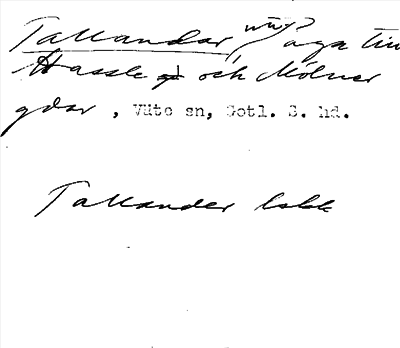 Tallandar, äga till
Hassle och Mölner
gdar, Väte sn, Gotl. S. hd.
Tallander